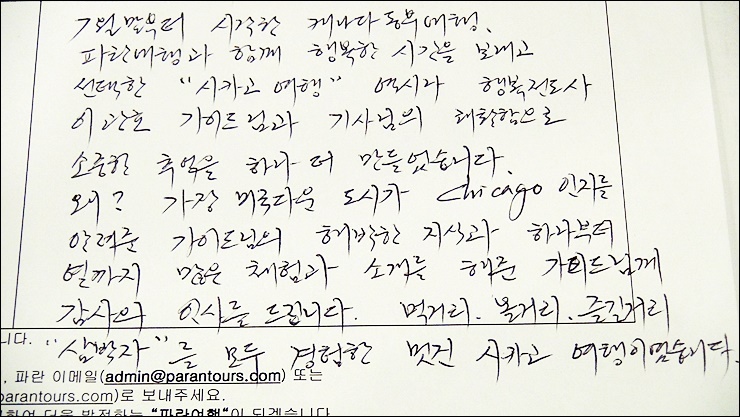 7월말부터 시작한 캐나다 동부여행.
파란여행과 함께 행복한 시간을 보내고
선택한 "시카고 여행" 역시나 행복전도사
이관호 가이드님과 기사님의 쾌활함으로
소중한 추억을 하나 더 만들었습니다.
왜? 가장 미국다운 도시가 Chicago 인지를
알려준 가이드님의 해박한 지식과 하나부터
열까지 많은 체험과 소개를 해준 가이드님께
감사의 인사를 드립니다. 먹거리. 볼거리. 즐길거리
니다.
"삼박자"를 모두 경험한 멋진 시카고 여행이었습니다.
, 파란 이메일(admin@parantours.com) 또는
parantours.com)로 보내주세요.
더욱 발전하는 "파란여행"이 되겠습니다